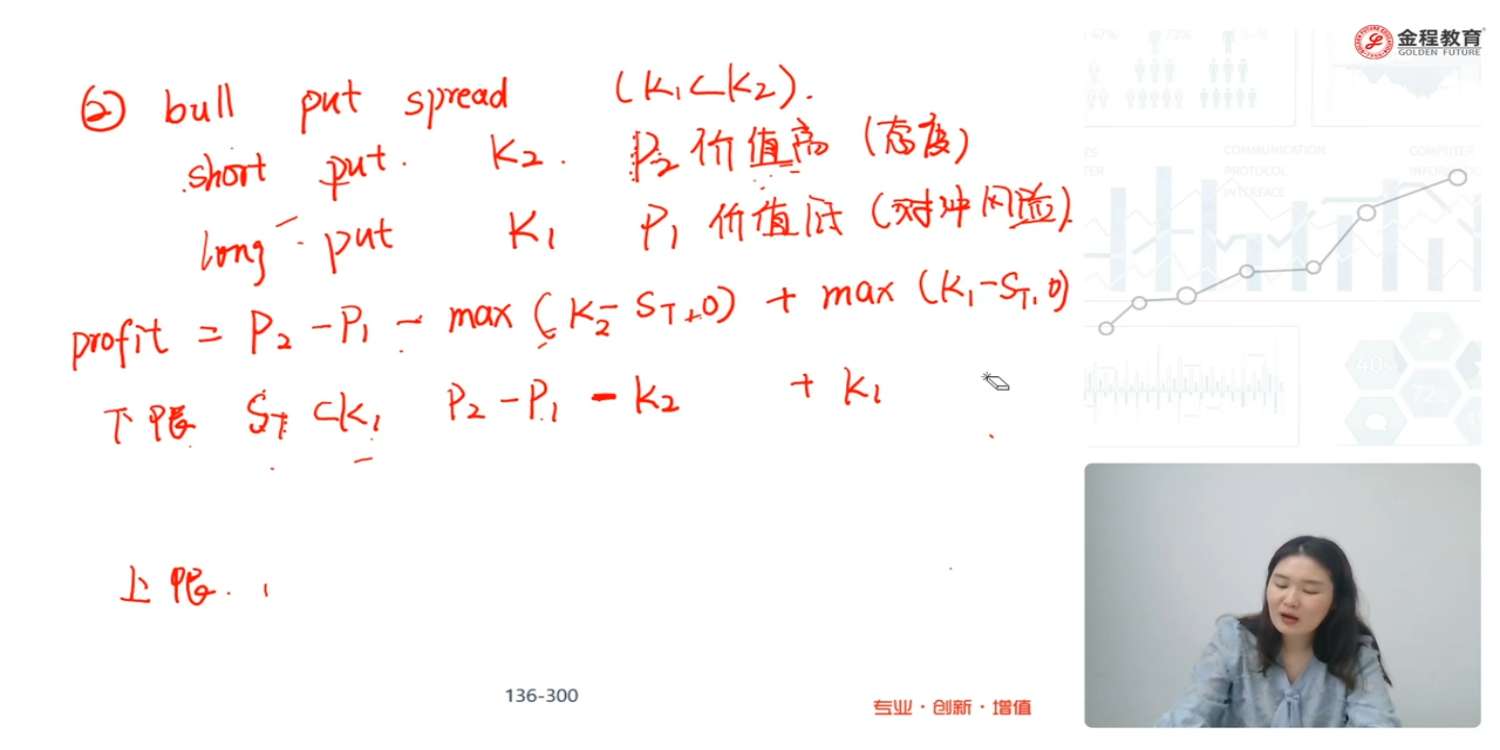 金程教育
GOLDEN FUTURE
② bull put spread (K₁<K₂).
short put. K₂. P₂ 价值高 (态度)
long put K₁ P₁ 价值低 (对冲风险)
profit = P₂ - P₁ - max (K₂ - S_T, 0) + max (K₁ - S_T, 0)
下限 S_T < K₁ P₂ - P₁ - K₂ + K₁
上限.
COMMUNICATION
PROTOCOL
INTERFACE
COMPUTER
40%
72%
136-300
专业·创新·增值